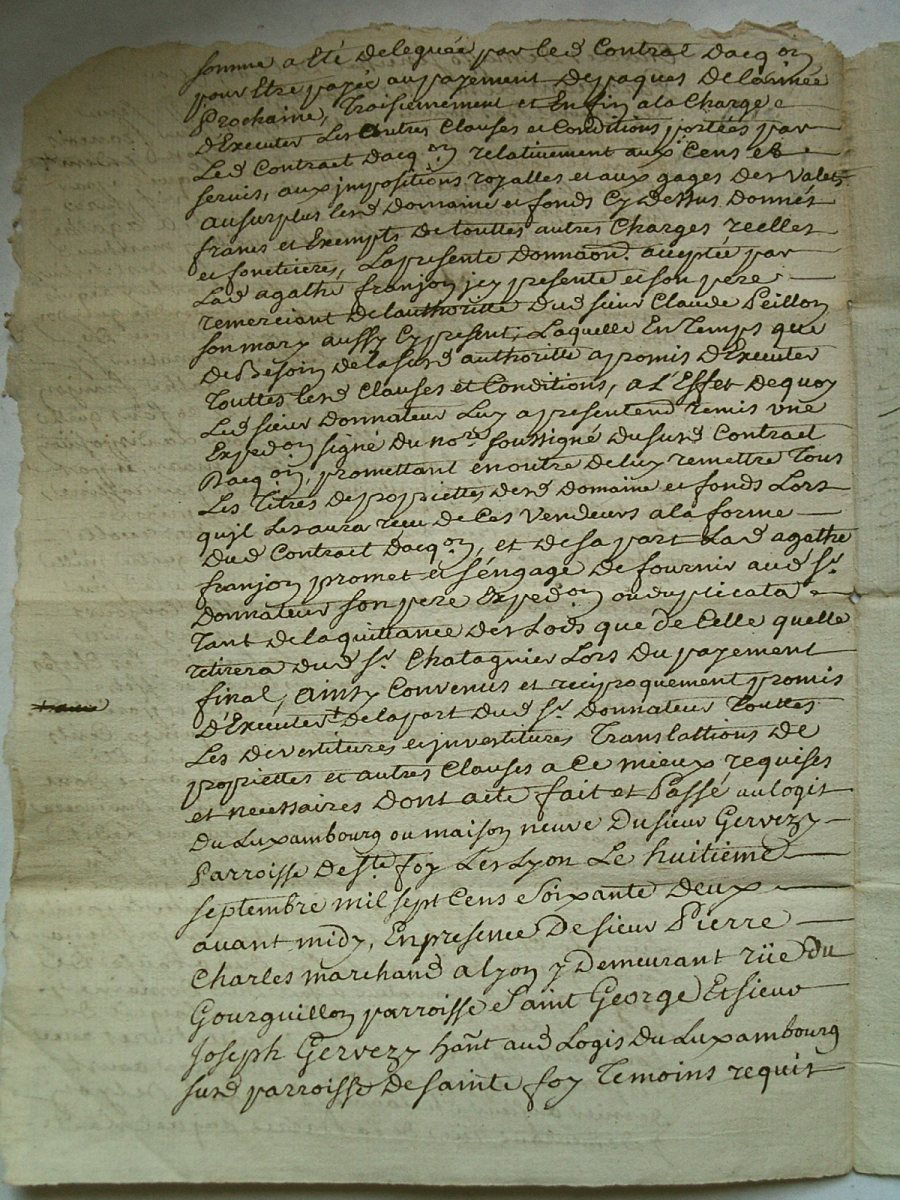 somme a été deleguée par led Contrat Dacq.on
pour Etre payée au payement De paques De lannée
Prochaine, Troisiemement et Enfin a la Charge
D'Executer Les autres Clauses et Conditions portées par
Led Contract Dacq.on relativement aux Cens et
servis, aux jmpositions royalles et aux gages des Valets
au surplus lesd Domaine et fonds Cy Dessus Donnés
francs et Exempts De touttes autres Charges reelles
et foncieres, La presente Donnaon. acceptée par
Lad agathe franjon jcy presente et son pere
remerciant de l'authorité Dud sieur Claude Peillon
son mary aussy Cy present, Laquelle En Temps que
De Besoin De la susd authorité a promis D'Executer
Touttes lesd Clauses et Conditions, a L'Effet De quoy
Led sieur Donnateur Luy a presentend remis vne
Exped.on signé du no.re soussigné Dususd Contract
Dacq.on, promettant en outre De luy remettre Tous
Les Titres De propriettes desd Domaine et fonds Lors
qu'jl Les aura reçu de Ces Vendeurs a la forme
Dud Contract Dacq.on, et de sa part Lad agathe
franjon promet et s'engage De fournir aud S.r
Donnateur son pere Exped.on ou duplicata
Tant de la quittance des Lods que de Celle quelle
retirera dud S.r Chatagnier Lors Du payement
final, ainsy Convenus et reciproquement promis
D'Executer Dela part Dud S.r Donnateur Touttes
Les Devestitures et jnvestitures Translattions De
propriettes et autres Clauses a Ce mieux requises
et necessaires Dont acte fait et Passé au logis
Du Luxambourg ou maison neuve Du sieur Gervezy
Parroisse De S.te foy Les Lyon Le huitième
septembre mil sept Cens Soixante Deux
avant midy, En presence De sieur Pierre
Charles marchand a lyon y Demeurant rüe Du
Gourguillon parroisse Saint George Et sieur
Joseph Gervezy hañt aud Logis Du Luxambourg
susd parroisse De sainte foy Temoins requis